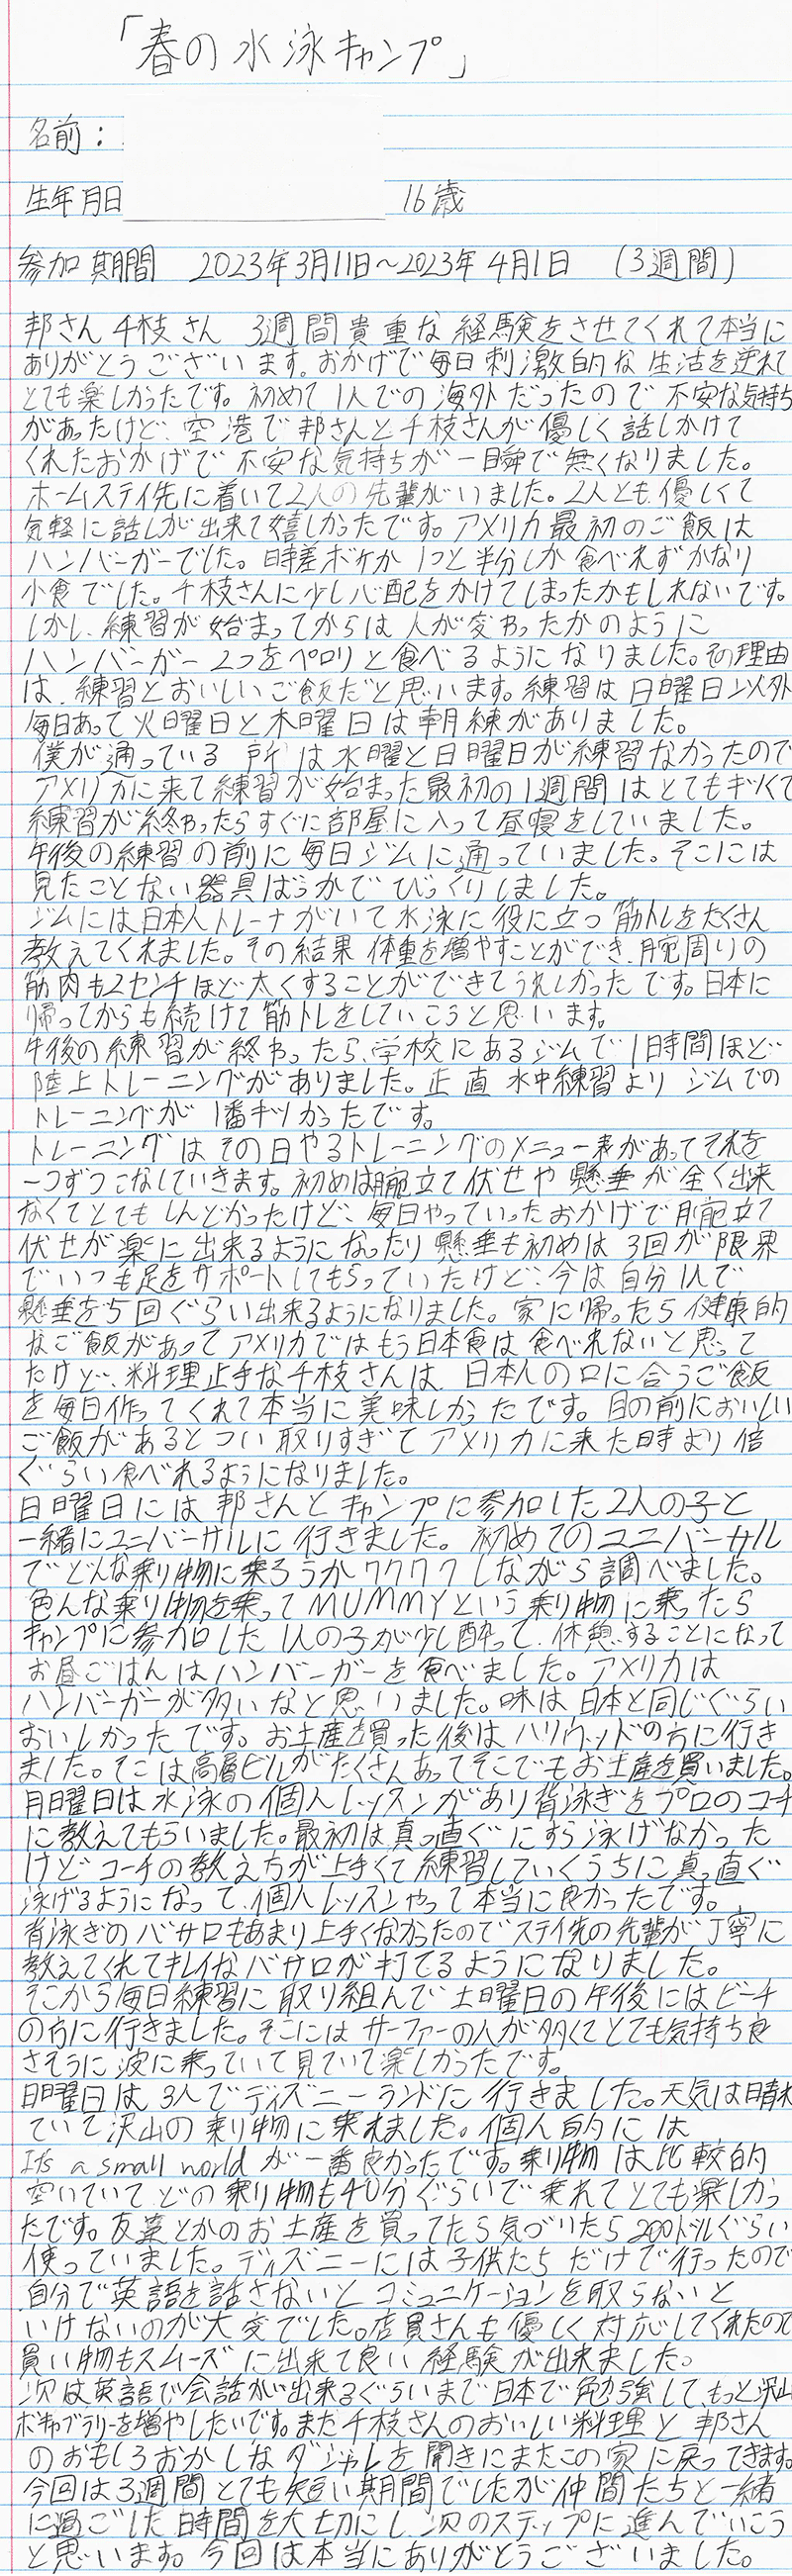 「春の水泳キャンプ」
名前：
生年月日 16歳
参加期間 2023年3月11日～2023年4月1日 (3週間)
邦さん千枝さん 3週間貴重な経験をさせてくれて本当に
ありがとうございます。おかげで毎日刺激的な生活を送れて
とても楽しかったです。初めて1人での海外だったので不安な気持ち
があったけど、空港で邦さんと千枝さんが優しく話しかけて
くれたおかげで不安な気持ちが一瞬で無くなりました。
ホームステイ先に着いて2人の先輩がいました。2人とも優しくて
気軽に話しが出来て嬉しかったです。アメリカ最初のご飯は
ハンバーガーでした。時差ボケか1つと半分しか食べれずかなり
小食でした。千枝さんに少し心配をかけてしまったかもしれないです。
しかし、練習が始まってからは人が変わったかのように
ハンバーガー2つをペロリと食べるようになりました。その理由
は、練習とおいしいご飯だと思います。練習は日曜日以外
毎日あって火曜日と木曜日は朝練がありました。
僕が通っている所は水曜と日曜日が練習なかったので
アメリカに来て練習が始まった最初の1週間はとてもキツくて
練習が終わったらすぐに部屋に入って昼寝をしていました。
午後の練習の前に毎日ジムに通っていました。そこには
見たことない器具ばっかでびっくりしました。
ジムには日本人トレーナがいて水泳に役に立つ筋トレをたくさん
教えてくれました。その結果体重を増やすことができ、腕周りの
筋肉も2センチほど太くすることができてうれしかったです。日本に
帰ってからも続けて筋トレをしていこうと思います。
午後の練習が終わったら、学校にあるジムで1時間ほど
陸上トレーニングがありました。正直水中練習よりジムでの
トレーニングが1番キツかったです。
トレーニングはその日やるトレーニングのメニュー表があってそれを
一つずつこなしていきます。初めは腕立て伏せや懸垂が全く出来
なくてとてもしんどかったけど、毎日やっていったおかげで腕立て
伏せが楽に出来るようになったり懸垂も初めは3回が限界
でいつも足をサポートしてもらっていたけど、今は自分1人で
懸垂を5回ぐらい出来るようになりました。家に帰ったら健康的
なご飯があってアメリカではもう日本食は食べれないと思って
たけど、料理上手な千枝さんは、日本人の口に合うご飯
を毎日作ってくれて本当に美味しかったです。目の前においしい
ご飯があるとつい取りすぎてアメリカに来た時より倍
ぐらい食べれるようになりました。
日曜日には邦さんとキャンプに参加した2人の子と
一緒にユニバーサルに行きました。初めてのユニバーサル
でどんな乗り物に乗ろうかワクワクしながら調べました。
色んな乗り物を乗ってMUMMYという乗り物に乗ったら
キャンプに参加した1人の子が少し酔って、休憩することになって
お昼ごはんはハンバーガーを食べました。アメリカは
ハンバーガーが多いなと思いました。味は日本と同じぐらい
おいしかったです。お土産を買った後はハリウッドの方に行き
ました。そこは高層ビルがたくさんあってそこでもお土産を買いました。
月曜日は水泳の個人レッスンがあり背泳ぎをプロのコーチ
に教えてもらいました。最初は真っ直ぐにすら泳げなかった
けどコーチの教え方が上手くて練習していくうちに真っ直ぐ
泳げるようになって、個人レッスンやって本当に良かったです。
背泳ぎのバサロもあまり上手くなかったのでステイ先の先輩が丁寧に
教えてくれてキレイなバサロが打てるようになりました。
そこから毎日練習に取り組んで土曜日の午後にはビーチ
の方に行きました。そこにはサーファーの人が多くてとても気持ち良
さそうに波に乗っていて見ていて楽しかったです。
日曜日は3人でディズニーランドに行きました。天気は晴れ
ていて沢山の乗り物に乗れました。個人的には
Its a small worldが一番良かったです。乗り物は比較的
空いていてどの乗り物も40分ぐらいで乗れてとても楽しかっ
たです。友達とかのお土産を買ってたら気づいたら200ドルぐらい
使っていました。ディズニーには子供たちだけで行ったので
自分で英語を話さないとコミュニケーションを取らないと
いけないのが大変でした。店員さんも優しく対応してくれたので
買い物もスムーズに出来て良い経験が出来ました。
次は英語で会話が出来るぐらいまで日本で勉強して、もっと沢山
ボキャブラリーを増やしたいです。また千枝さんのおいしい料理と邦さん
のおもしろおかしなダジャレを聞きにまたこの家に戻ってきます。
今回は3週間とても短い期間でしたが仲間たちと一緒
に過ごした時間を大切にし次のステップに進んでいこう
と思います。今回は本当にありがとうございました。